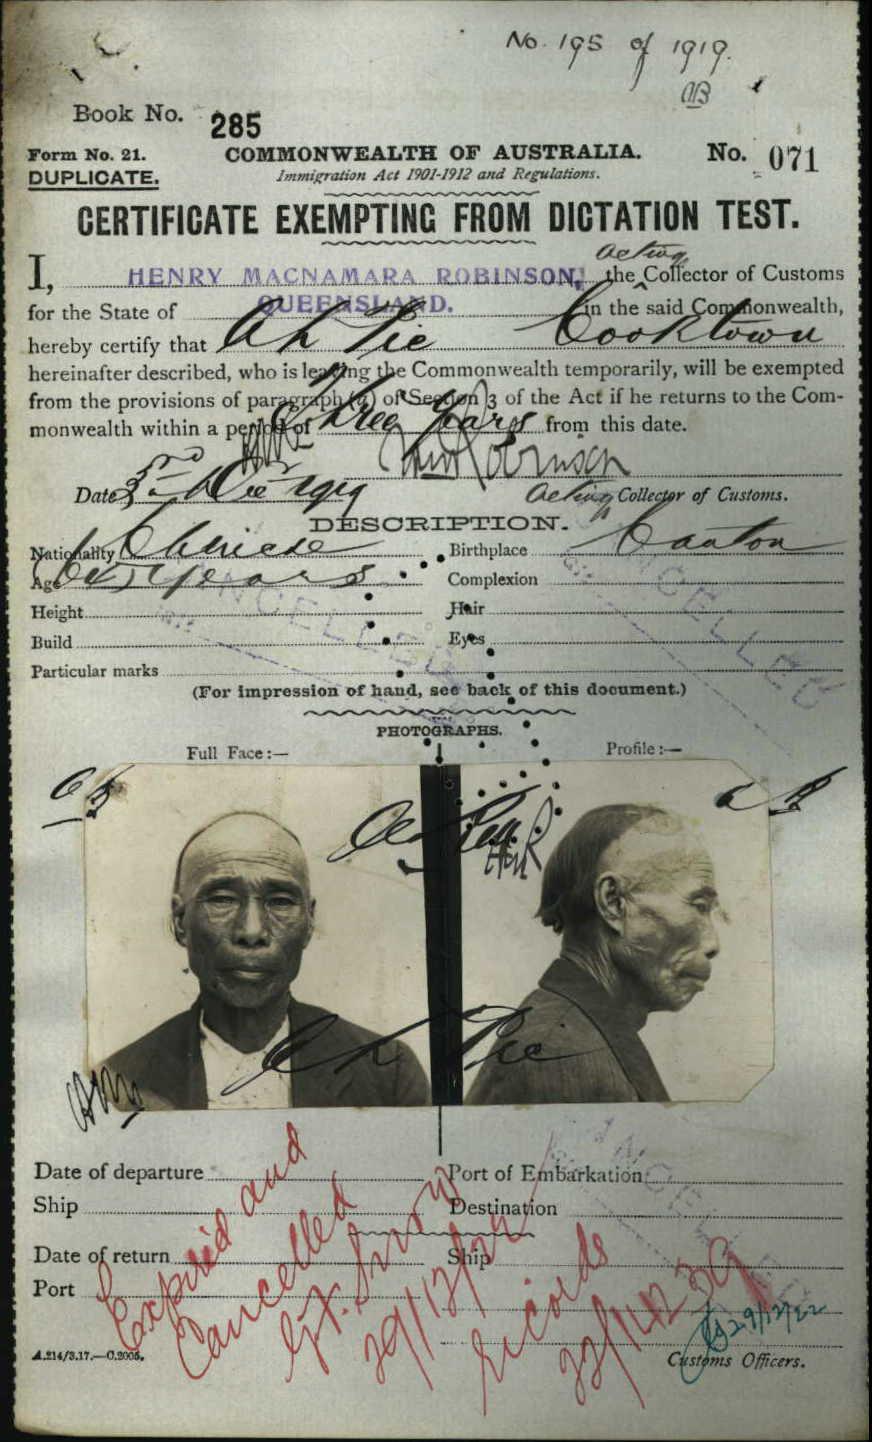 No. 195 of 1919.
Book No. 285
Form No. 21. COMMONWEALTH OF AUSTRALIA. No. 071
DUPLICATE. Immigration Act 1901-1912 and Regulations.
CERTIFICATE EXEMPTING FROM DICTATION TEST.
acting
I, HENRY MACNAMARA ROBINSON, the Collector of Customs
for the State of QUEENSLAND. in the said Commonwealth,
hereby certify that Ah Pie Cooktown
hereinafter described, who is leaving the Commonwealth temporarily, will be exempted
from the provisions of paragraph (a) of Section 3 of the Act if he returns to the Com-
monwealth within a period of Three years from this date.
HMR HMRobinson
Date 3rd Dec 1919 Acting Collector of Customs.
DESCRIPTION.
Nationality Chinese Birthplace Canton
Age 64 years Complexion
Height Hair
Build Eyes
Particular marks
CANCELLED CANCELLED
(For impression of hand, see back of this document.)
PHOTOGRAPHS.
Full Face:— Profile:—
HMR
Ah Pie
HMR
Date of departure Port of Embarkation
Ship Destination
Date of return Ship
Port
CANCELLED
Expired and
Cancelled
29/12/22
records
29/12/22
A.214/3.17.—C.2005. Customs Officers.